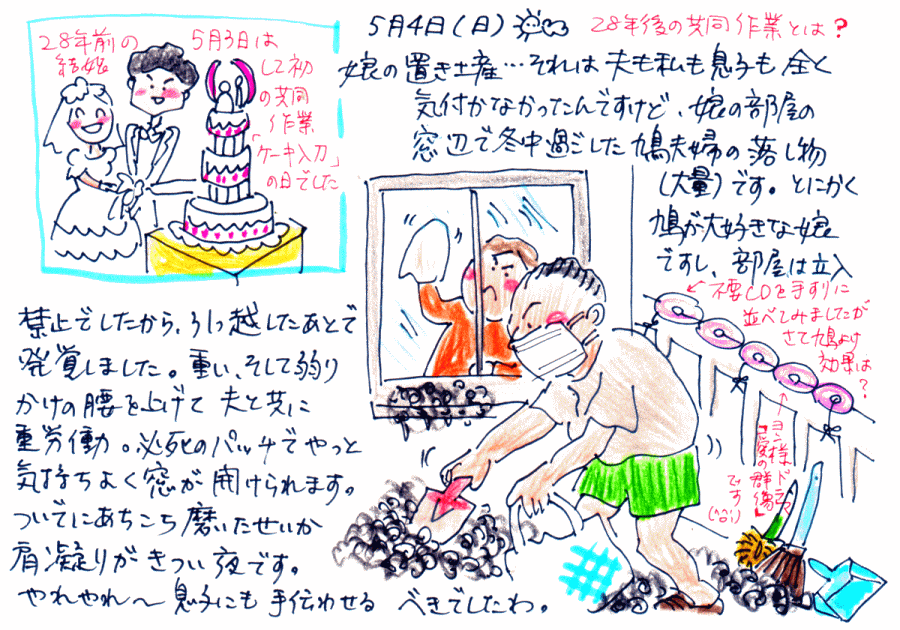 5月4日(日)
28年後の共同作業とは?
28年前の
結婚
5月3日は
して初
の共同
作業
「ケーキ入刀」
の日でした
娘の置き土産…それは夫も私も息子も全く
気付かなかったんですけど、娘の部屋の
窓辺で冬中過ごした鳩夫婦の落し物
(大量)です。とにかく
鳩が大好きな娘
ですし、部屋は立入
禁止でしたから、引っ越したあとで
発覚しました。重い、そして弱り
かけの腰を上げて夫と共に
重労働。必死のパッチでやっと
気持ちよく窓が開けられます。
ついでにあちこち磨いたせいか
肩凝りがきつい夜です。
やれやれ〜息子にも手伝わせるべきでしたわ。
←不要CDを手すりに
並べてみましたが
さて鳩よけ
効果は?
←ヨン様ドラマ
「愛の群像」
です(^o^;)